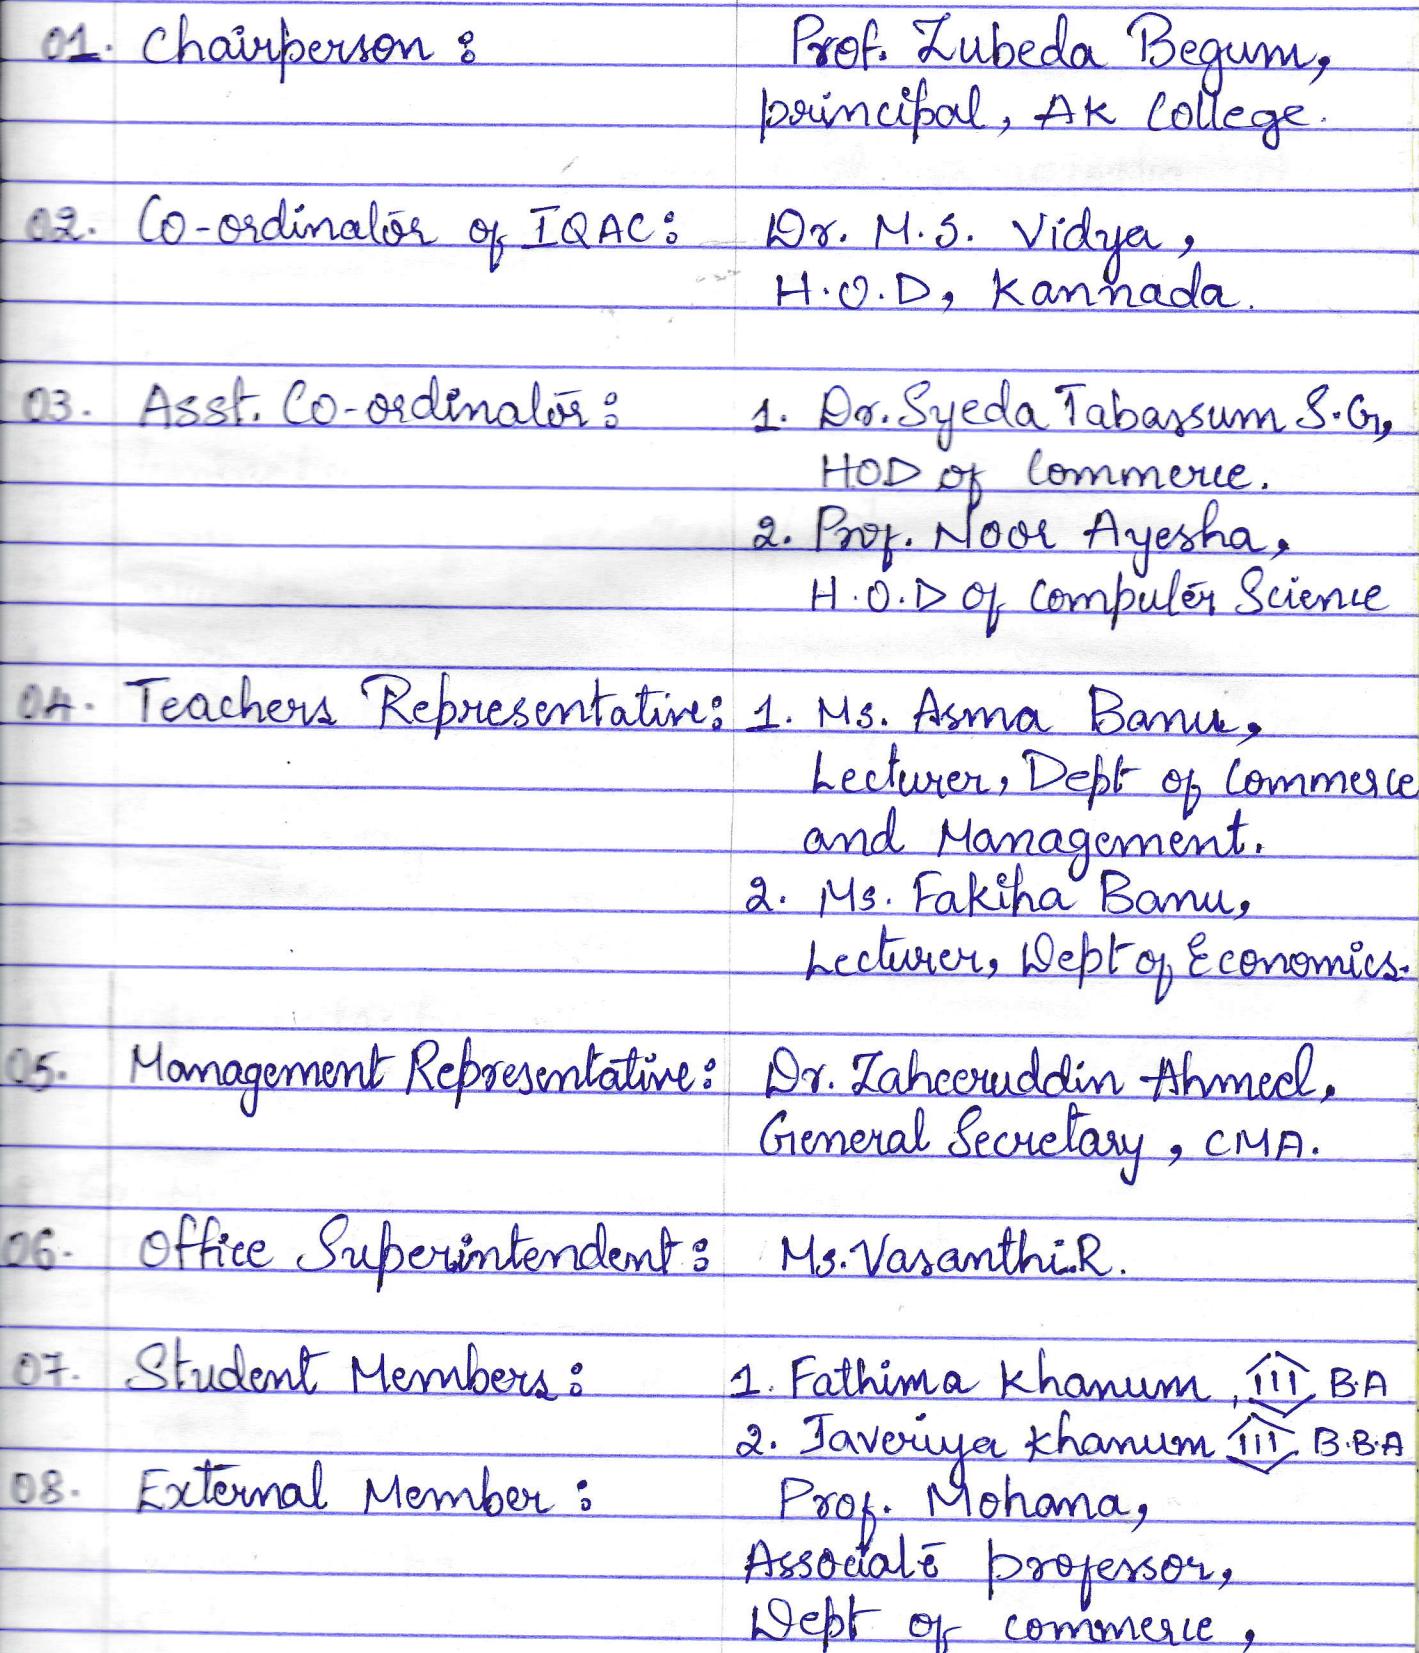 01. Chairperson : Prof. Zubeda Begum,
principal, AK College.
02. Co-ordinator of IQAC : Dr. M.S. Vidya,
H.O.D, Kannada.
03. Asst. Co-ordinator : 1. Dr. Syeda Tabassum S.G,
HOD of Commerce.
2. Prof. Noor Ayesha,
H.O.D of Computer Science
04. Teachers Representative : 1. Ms. Asma Banu,
Lecturer, Dept of Commerce
and Management.
2. Ms. Fakiha Banu,
Lecturer, Dept of Economics.
05. Management Representative : Dr. Zaheeruddin Ahmed,
General Secretary, CMA.
06. Office Superintendent : Ms. Vasanthi.R.
07. Student Members : 1. Fathima Khanum, III B.A
2. Javeriya Khanum III B.B.A
08. External Member : Prof. Mohana,
Associate professor,
Dept of commerce,